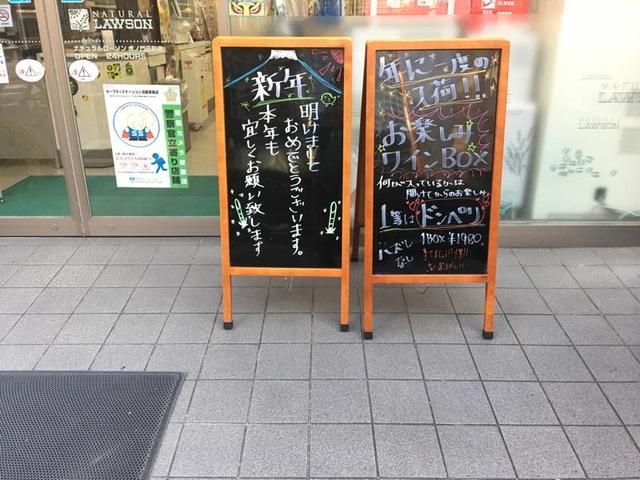 NATURAL
LAWSON
ナチュラルローソン 虎ノ門店
OPEN 24HOURS
セーフティステーション活動実施店
SS
警察官立寄り店舗
新年
明けまして
おめでとうございます。
本年も
宜しくお願い致します
年に一度の
入荷!!
お楽しみ
ワインBOX
何が入っているかは
開けてからのお楽しみ
1等はドンペリ
ハズレ
なし
1BOX ¥1980
NATURAL
LAWSON